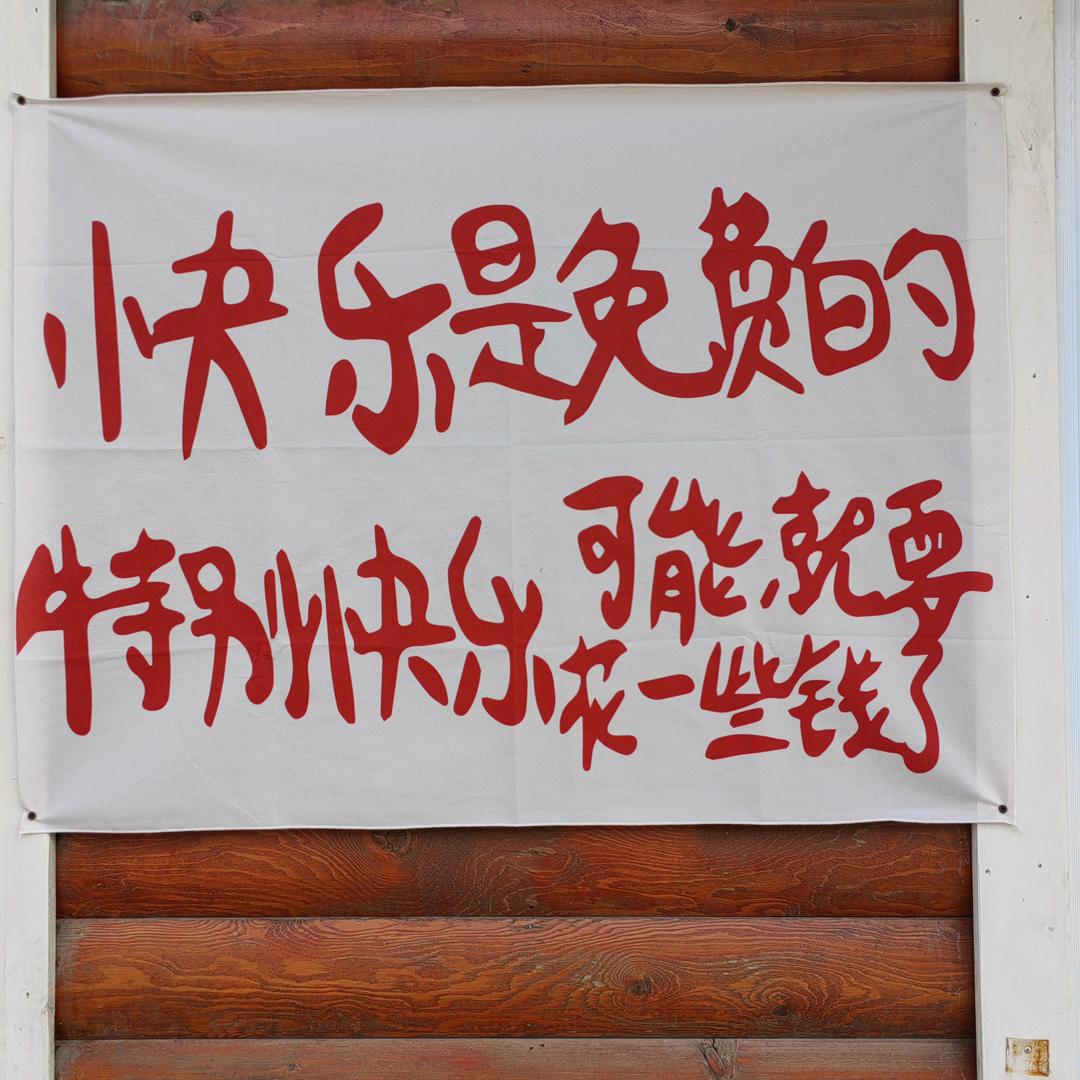 快乐是免费的
特别快乐
可能就要
花一些钱